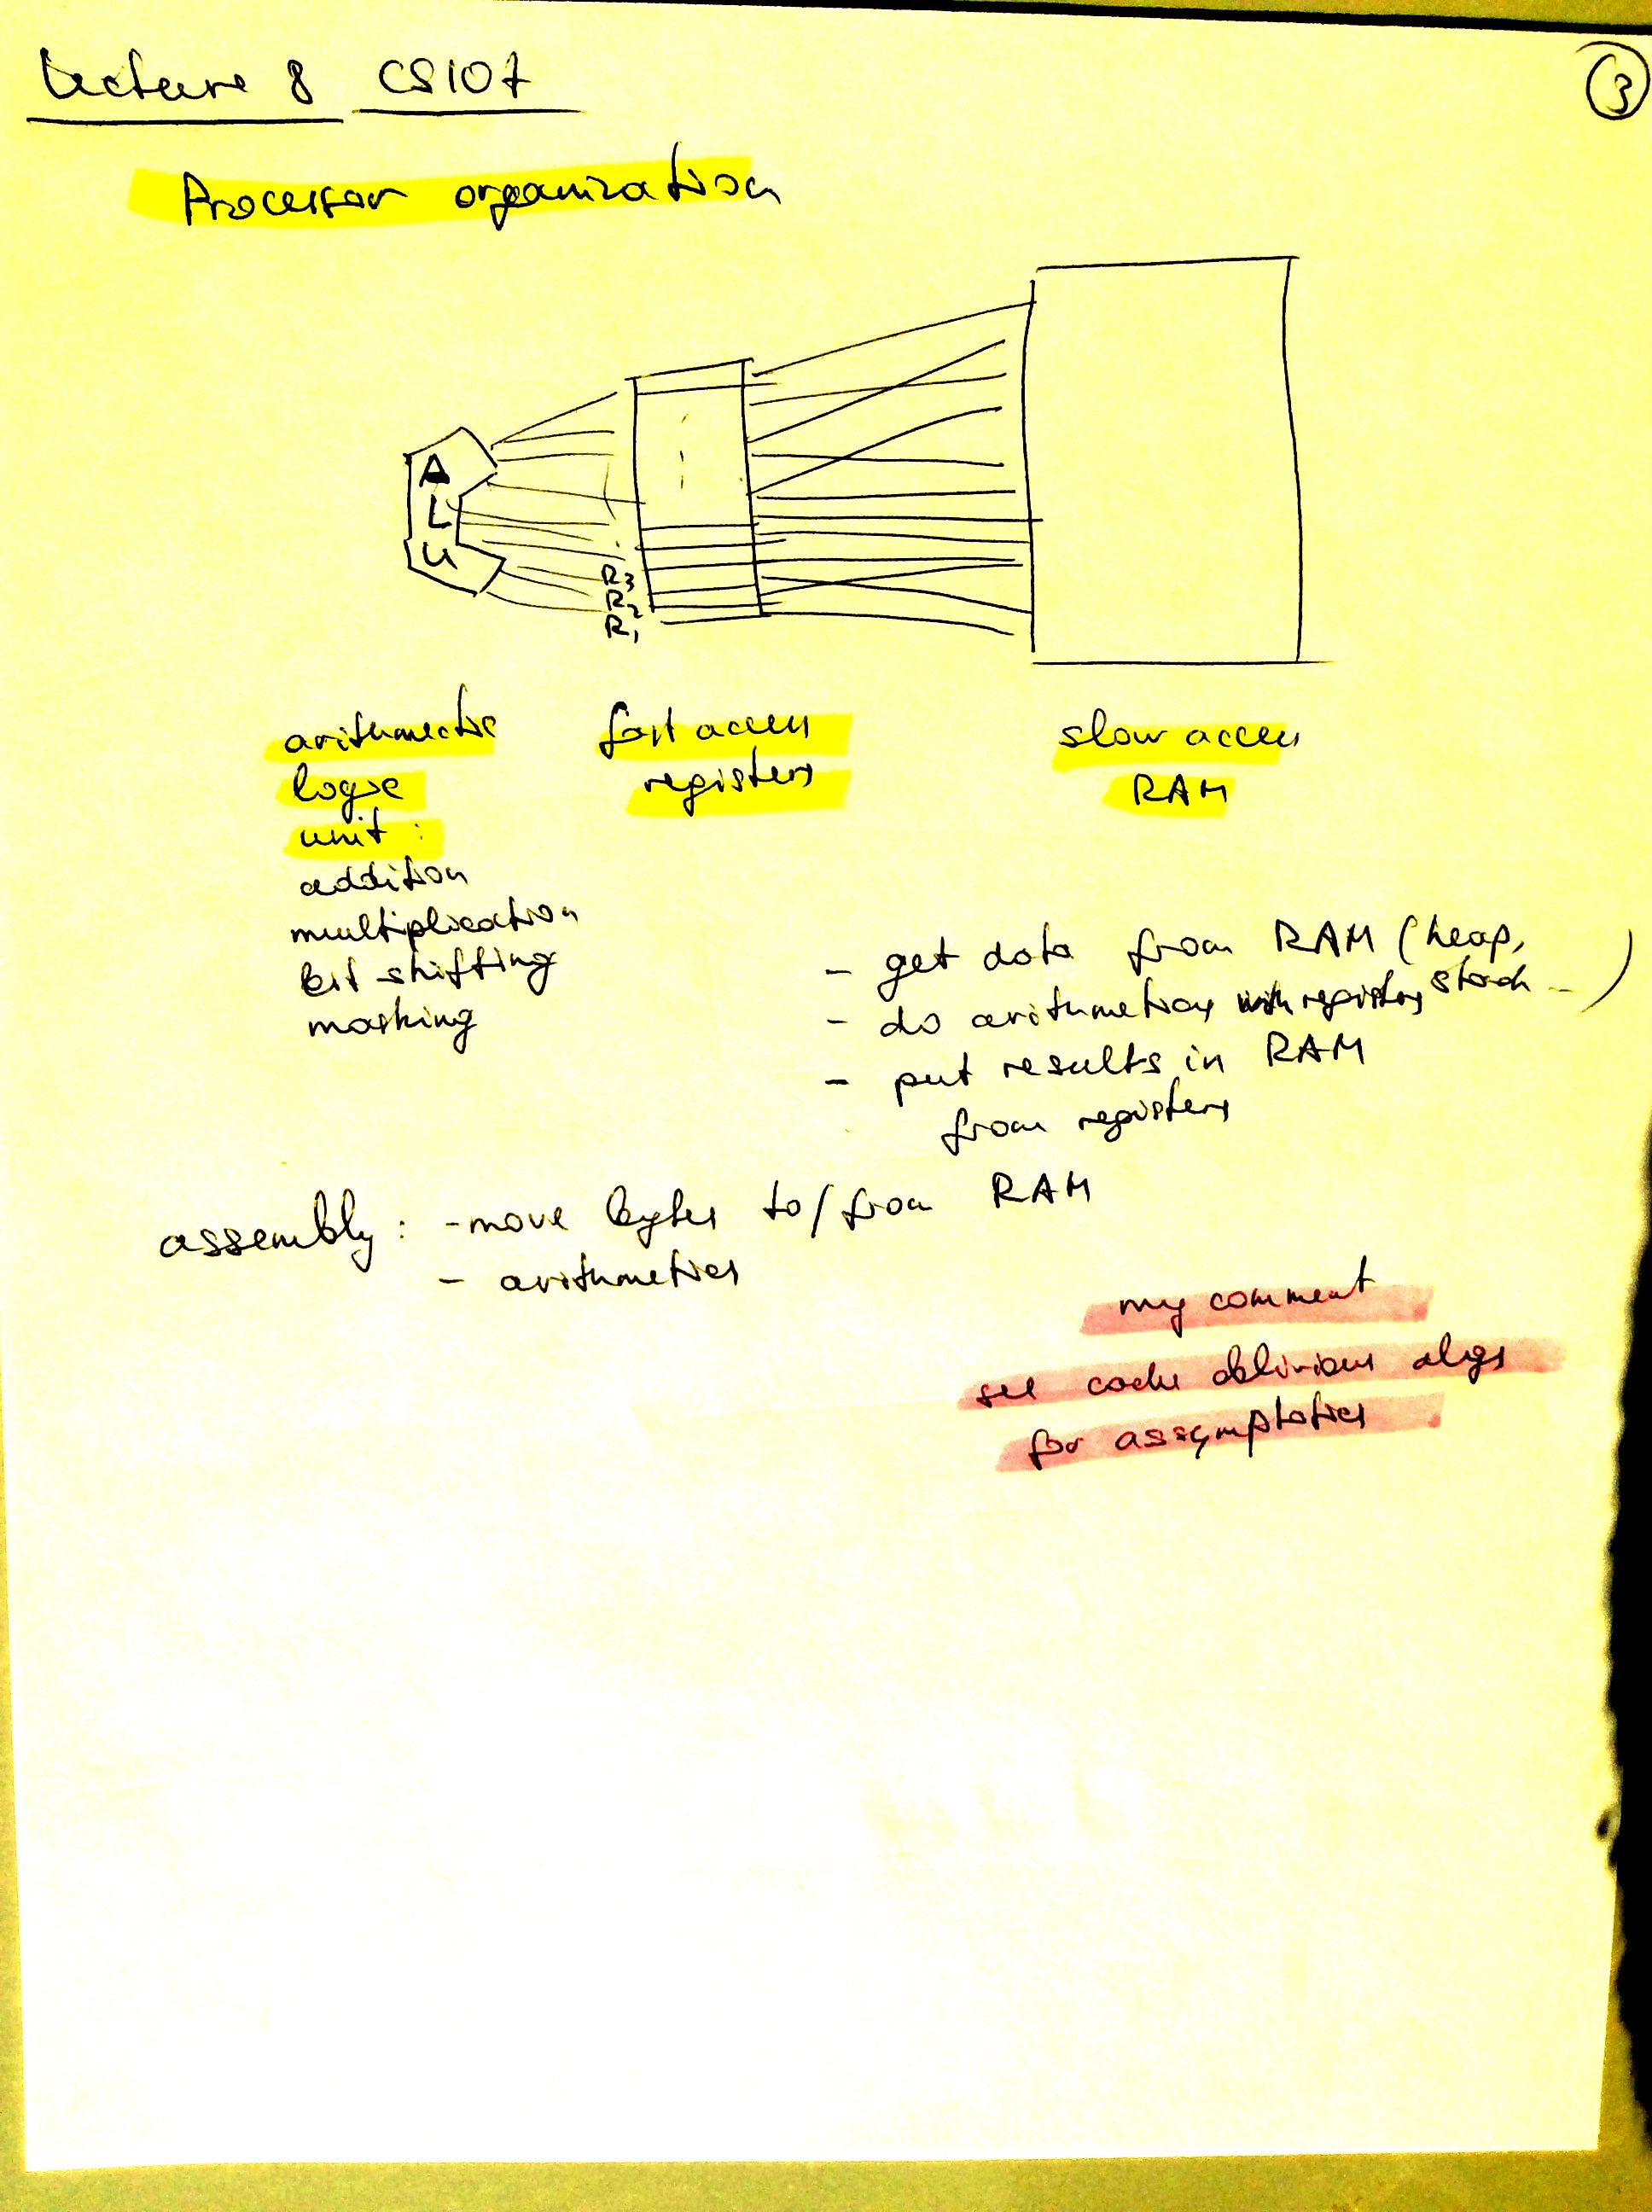 Lecture 8 CS107
3
Processor organization
A
L
U
R3
R2
R1
arithmetic
logic
unit :
addition
multiplication
bit shifting
masking
fast access
registers
slow access
RAM
- get data from RAM (heap, stack ...)
- do arithmetics with registers
- put results in RAM
from registers
assembly : - move bytes to/from RAM
- arithmetics
my comment
see cache oblivious algs
for assymptotics